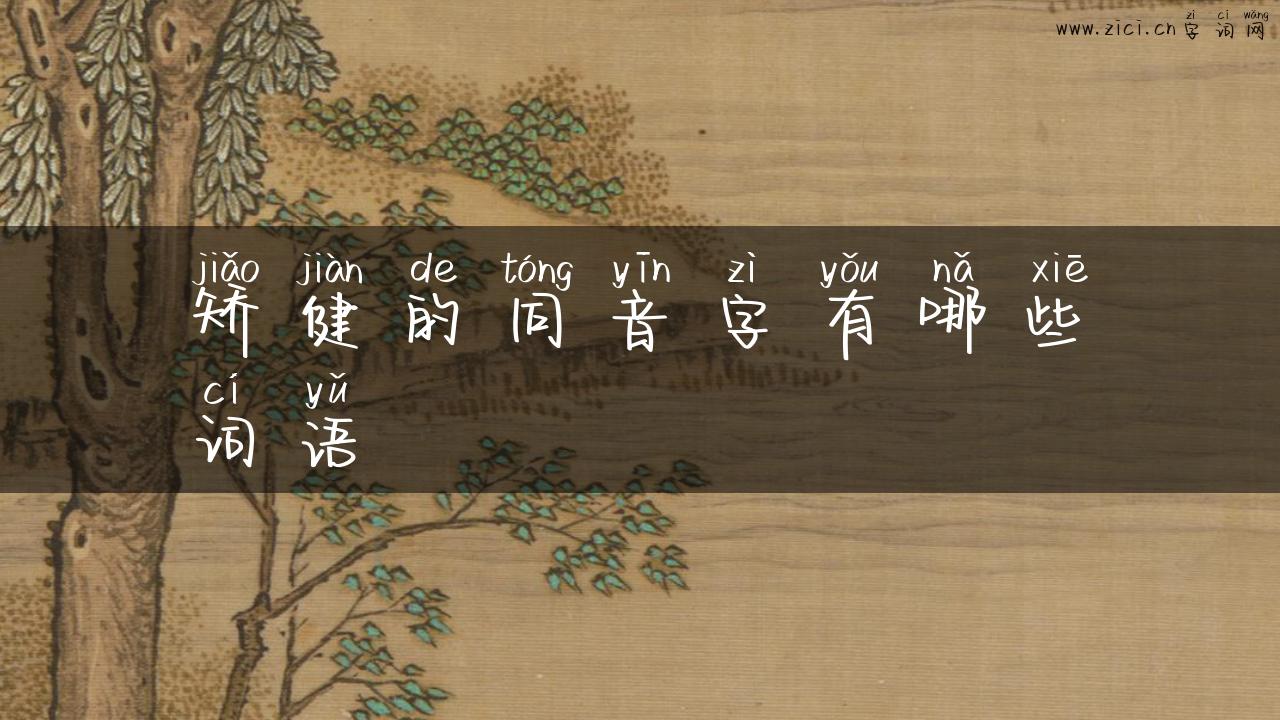 zì cí wǎng
www.zici.cn 字词网
jiǎo jiàn de tóng yīn zì yǒu nǎ xiē
矫健的同音字有哪些
cí yǔ
词语